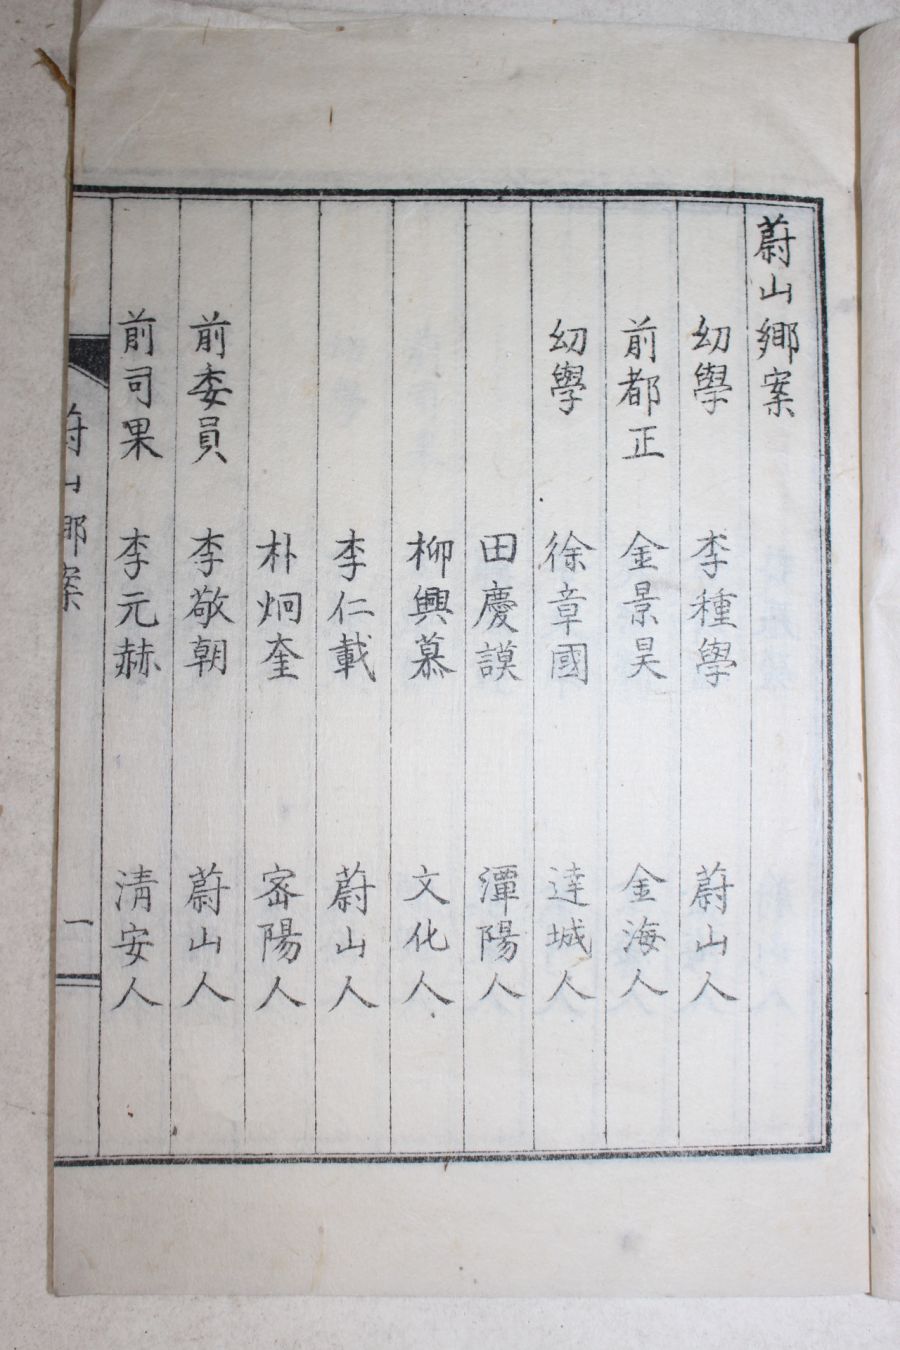 蔚山鄉案
幼學 李種學 蔚山人
前都正 金景昊 金海人
幼學 徐章國 達城人
田慶謨 潭陽人
柳興慕 文化人
李仁載 蔚山人
朴炯奎 密陽人
前委員 李敬朝 蔚山人
前司果 李元赫 清安人
蔚山鄉案 一